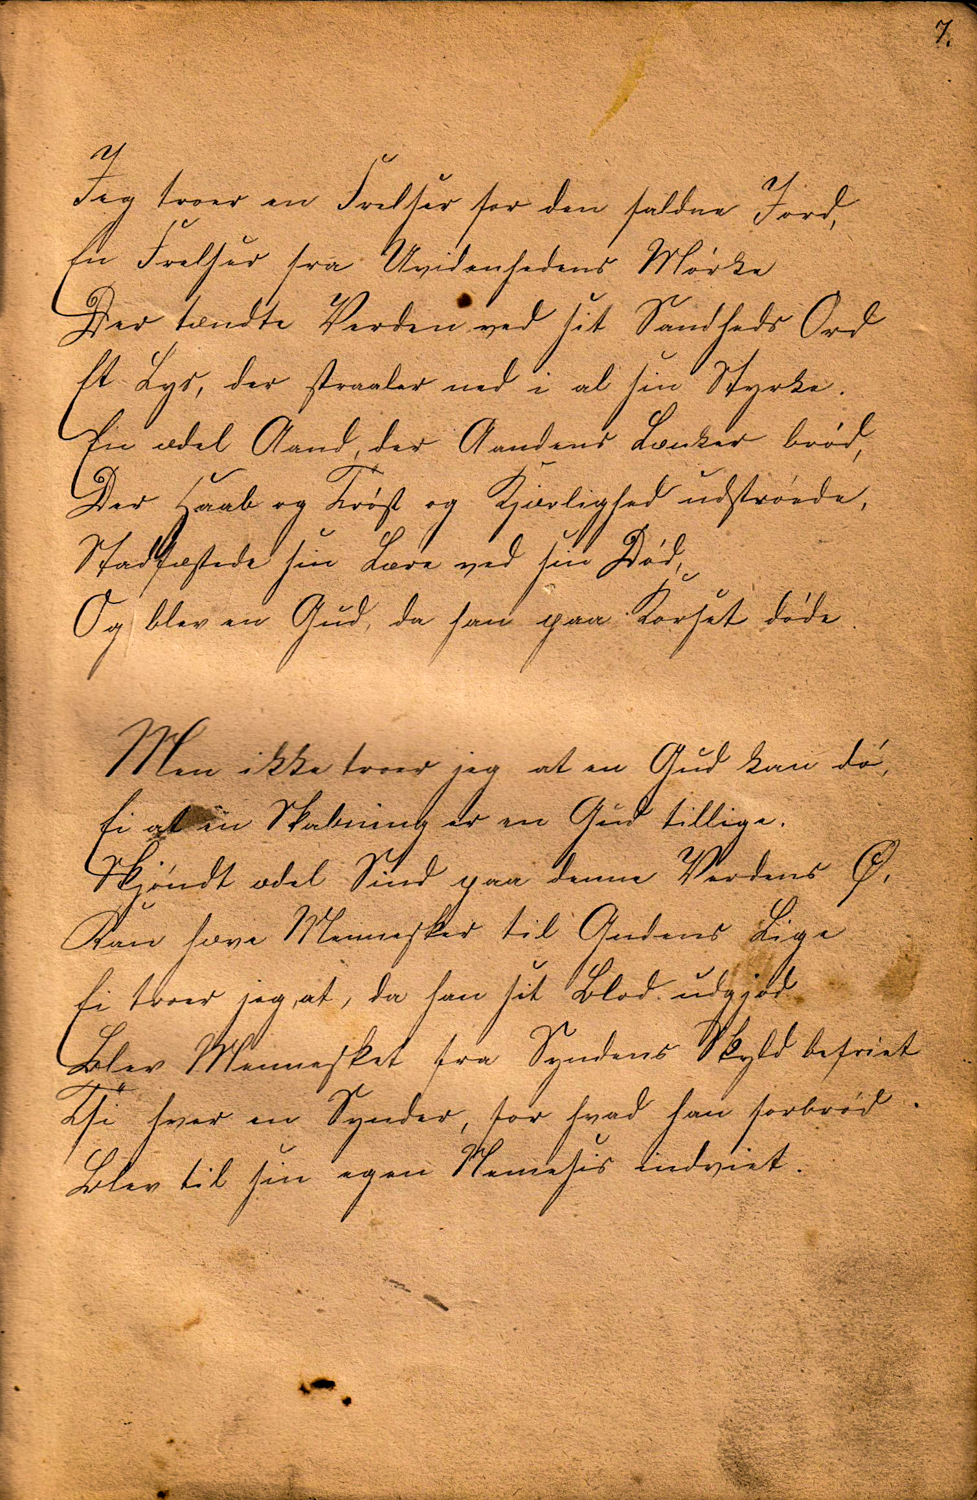 7.
Jeg troer en Frelser for den faldne Jord,
En Frelser fra Uvidenhedens Mörke
Der tændte Verden ved sit Sandheds Ord
Et Lys, der straaler ned i al sin Styrke.
En ædel Aand, der Aandens Lænker bröd,
Der Haab og Tröst og Kjærlighed udströede,
Stadfæstede sin Lære ved sin Död,
Og blev en Gud, da han paa Korset döde.
Men ikke troer jeg at en Gud kan dö,
Ei at en Skabning er en Gud tillige.
Skjöndt ædel Sind paa denne Verdens Ø,
Kan hæve Mennesker til Gudens Lige
Ei troer jeg, at, da han sit Blod udgjöd
Blev Mennesket fra Syndens Skyld befriet
Thi hver en Synder, for hvad han forbröd.
Blev til sin egen Nemesis indviet.